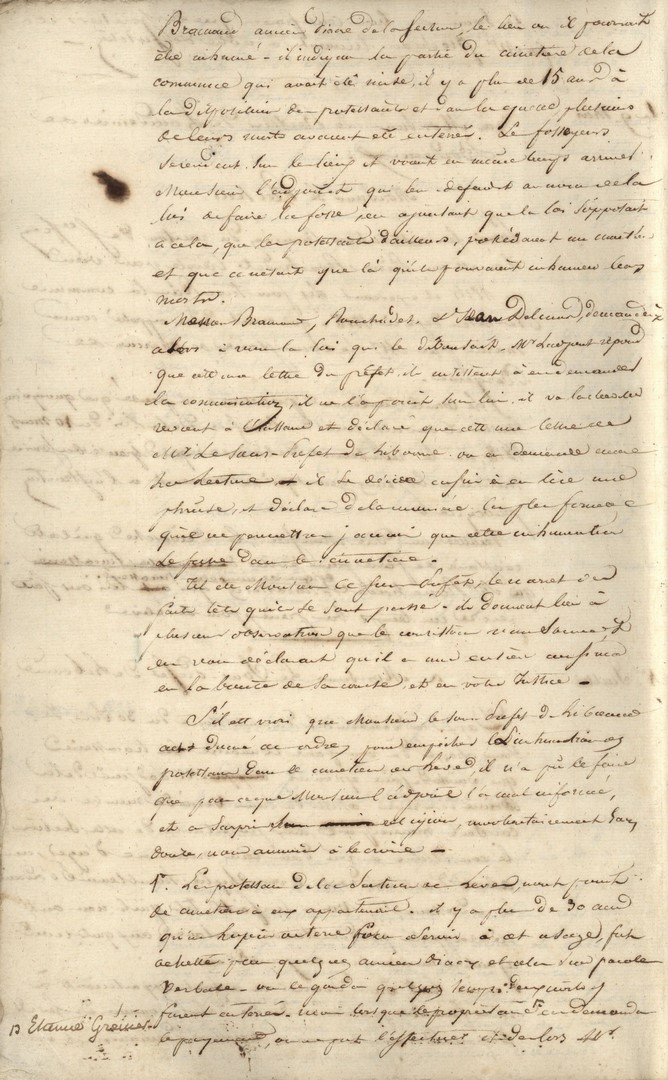 Bramond ancien Diacre de la Section, le lieu où il pourrait
être inhumé - il indiqua la partie du cimetiere de la
commune qui avait été mise, il y a plus de 15 ans, à
la disposition des protestants et dans laquelle plusieurs
de leurs morts avaient été enterrés. Les fossoyeurs
se rendent sur les lieux et voient en même temps arriver
Monsieur l'adjoint qui leur defend au nom de la
loi de faire la fosse, en ajoutant que la loi s'opposait
a cela, que les protestants d'ailleurs, possédaient un cimetiere
et que ce n'était que là qu'ils pouvaient inhumer leurs
morts.
Bramond, Jean demande
alors à voir la loi qui le Mr L'adjoint répond
que c'est une lettre du préfet, ils insistent à en demander
la communication, il ne l'a point sur lui, il va la chercher
revient et déclare que c'est une lettre de
Mr Le Sous-Préfet de Libourne on en demande
lecture - il se décide enfin à en lire une
phrase, et déclare de la maniere la plus formelle
qu'il ne permettra jamais que cette inhumation
se fasse dans le cimetiere.
Tel est Monsieur le Sous Préfet, le narré des
faits tels qu'ils se sont passés - ils donnent lieu à
plusieurs observations que le consistoire vous soumet
en vous déclarant qu'il a une entière confiance
en la bonté de sa cause, et en votre Justice -
S'il est vrai que Monsieur le Sous Préfet de Libourne
ait donné des ordres pour empêcher l'inhumation des
protestans dans le cimetiere de Lèves, il n'a pû le faire
que parce que Monsieur l'adjoint l'a mal informé,
et a surpris sa religion, involontairement sans
doute, nous aimons à le croire -
1°. Les protestans de la Section de Lèves, n'ont point
de cimetière à eux appartenant. il y a plus de 30 ans
qu'un lopin de terre pour servir à cet usage, fut
acheté par quelques anciens diacres et cela sur parole
verbale - on le garda quelques temps deux corps y
furent enterrés - mais lorsque le propriétaire en demanda
le payement, on ne put l'effectuer et dès lors Mr
Etienne Greines